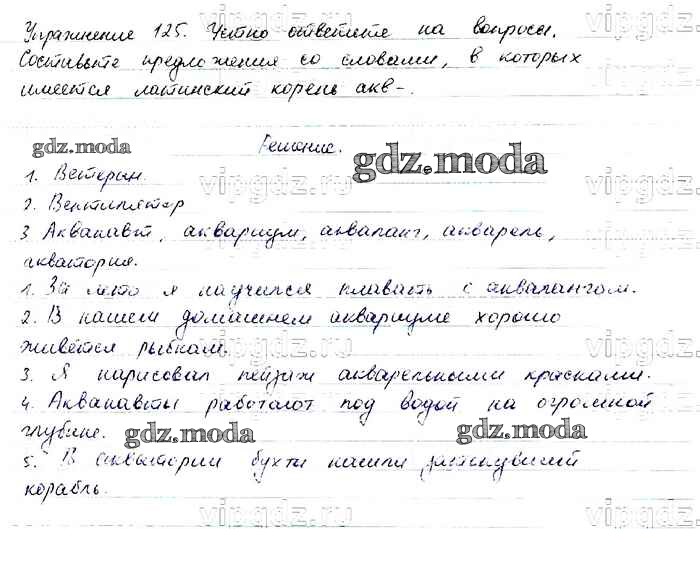 Упражнение 125. Устно ответьте на вопросы.
Составьте предложения со словами, в которых
имеется латинский корень акв-.
gdz.moda Решение. gdz.moda
1. Ветеран.
2. Вентилятор
3. Акванавт, аквариум, акваланг, акварель,
акватория.
1. За лето я научился плавать с аквалангом.
2. В нашем домашнем аквариуме хорошо
живётся рыбкам.
3. Я нарисовал пейзаж акварельными красками.
4. Акванавты работают под водой на огромной
глубине. gdz.moda gdz.moda
5. В акватории бухты нашли затонувший
корабль.
vipgdz.ru